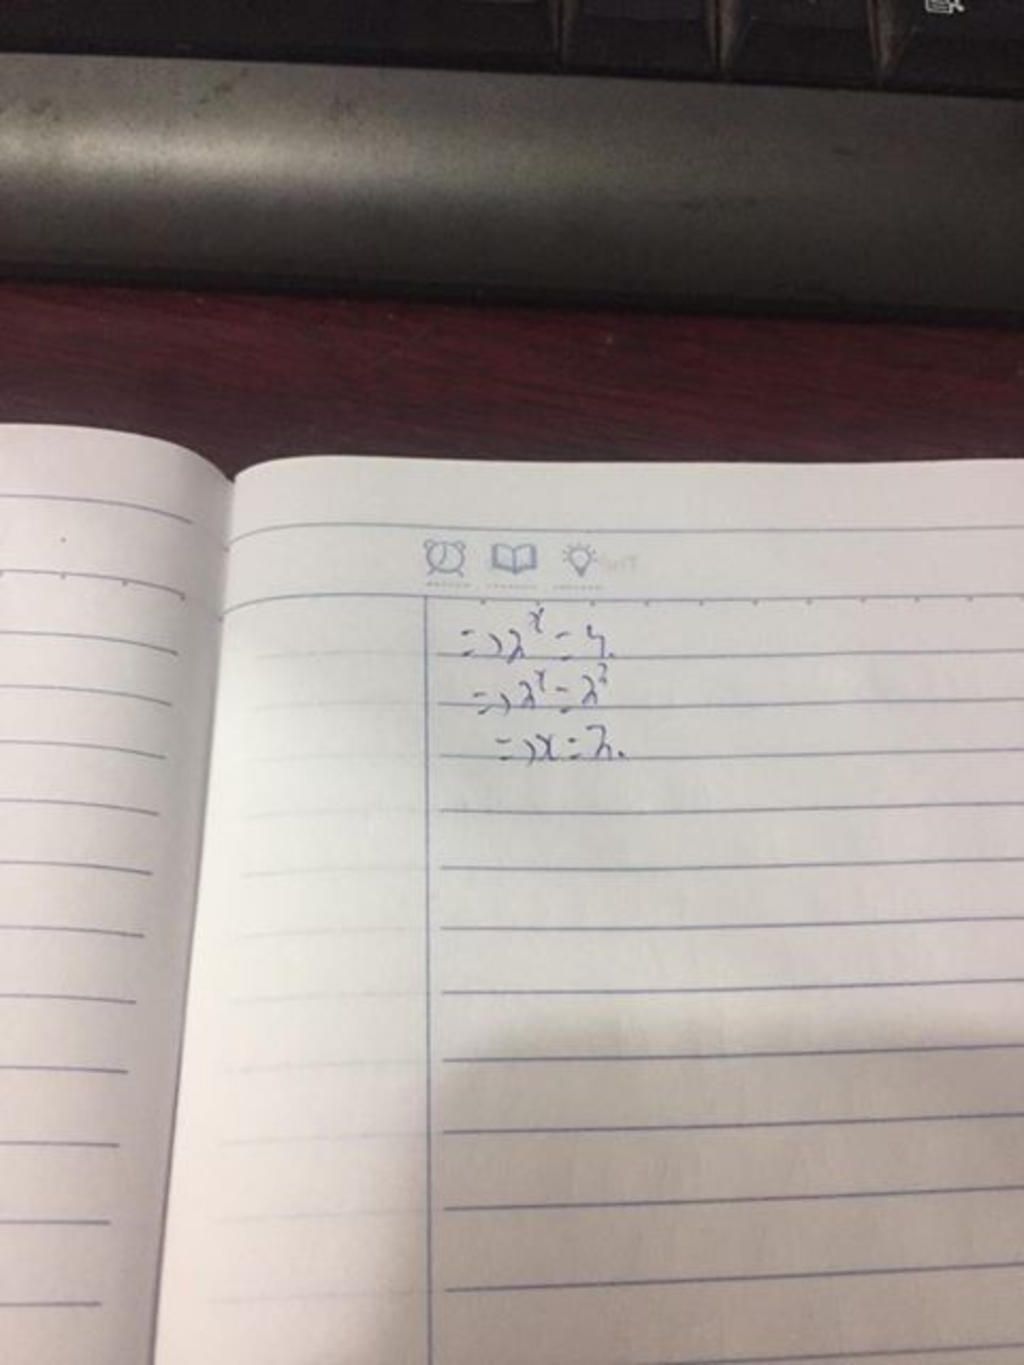 => 2^x = 4.
=> 2^x = 2^2
=> x = 2.